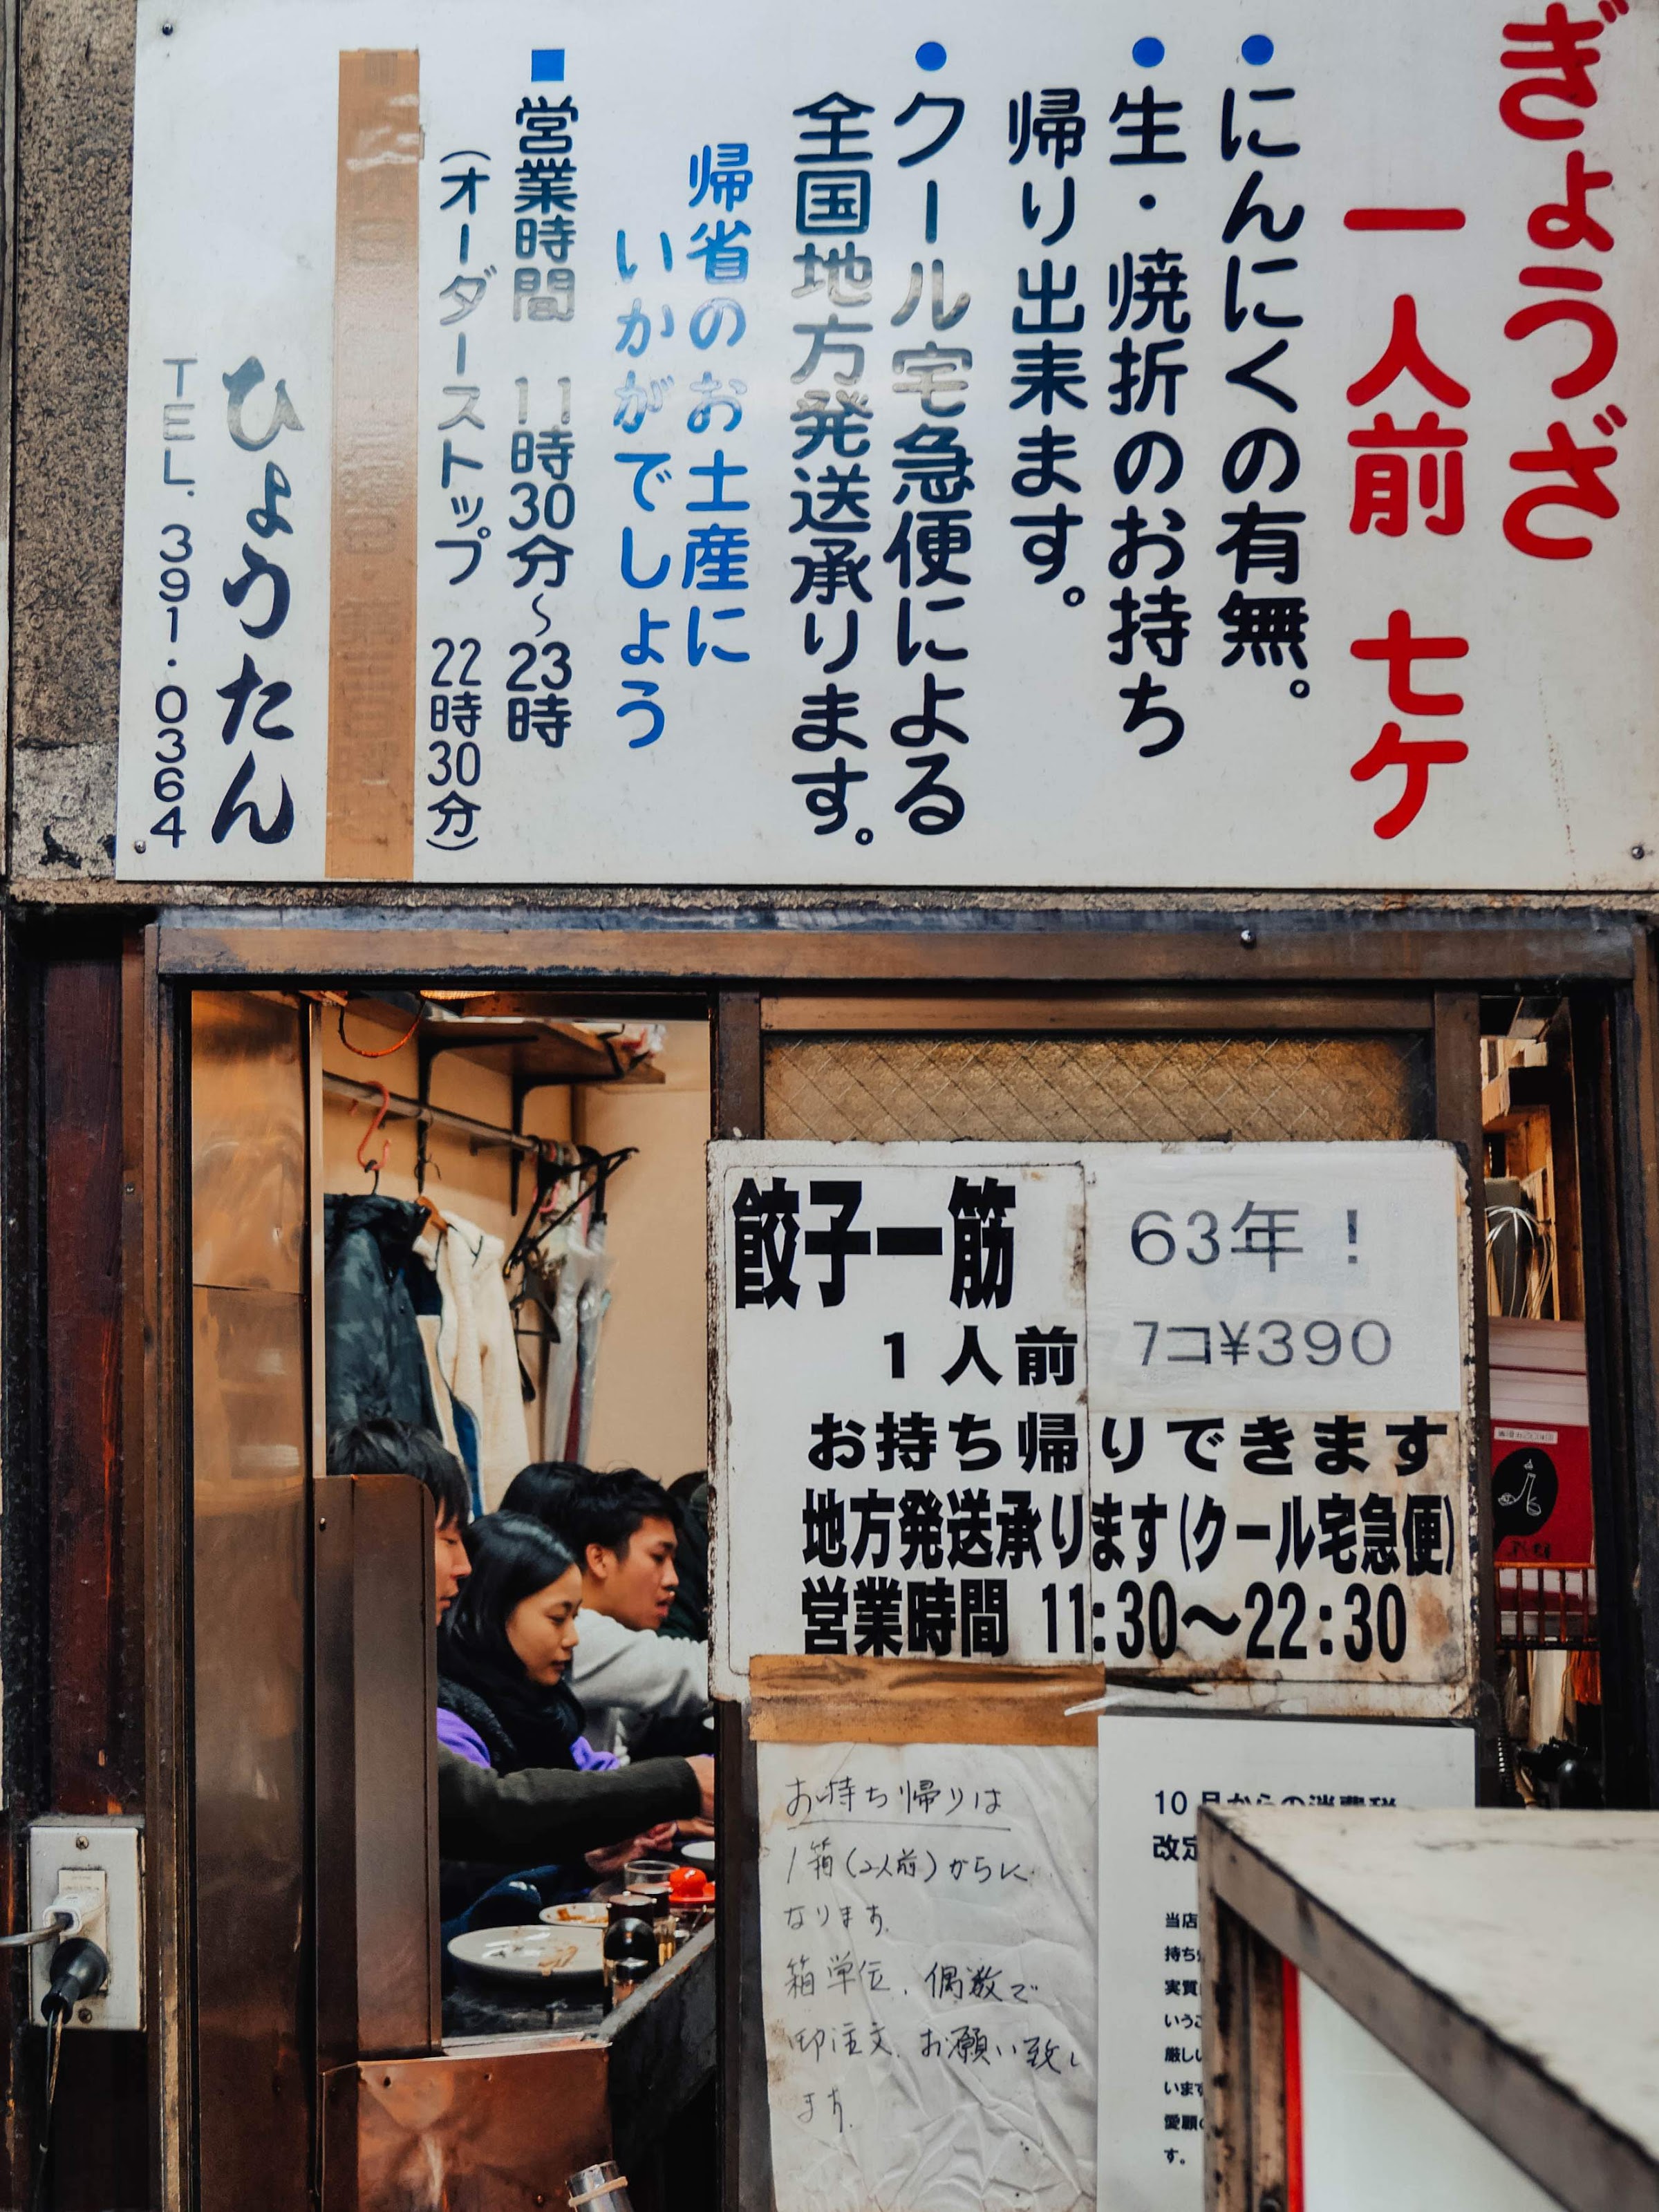 ぎょうざ
一人前 七ケ
●にんにくの有無。
●生・焼折のお持ち
帰り出来ます。
●クール宅急便による
全国地方発送承ります。
帰省のお土産に
いかがでしょう
■営業時間 11時30分~23時
(オーダーストップ 22時30分)
ひょうたん
TEL.391・0364
餃子一筋
63年!
1人前
7コ¥390
お持ち帰りできます
地方発送承ります(クール宅急便)
営業時間 11:30〜22:30
お持ち帰りは
1箱(2人前)からに
なります。
箱単位、偶数で
御注文、お願い致し
ます。
10月からの消費税
改定
当店
持ち
実質
いうこ
厳しい
います
愛顧の
す。